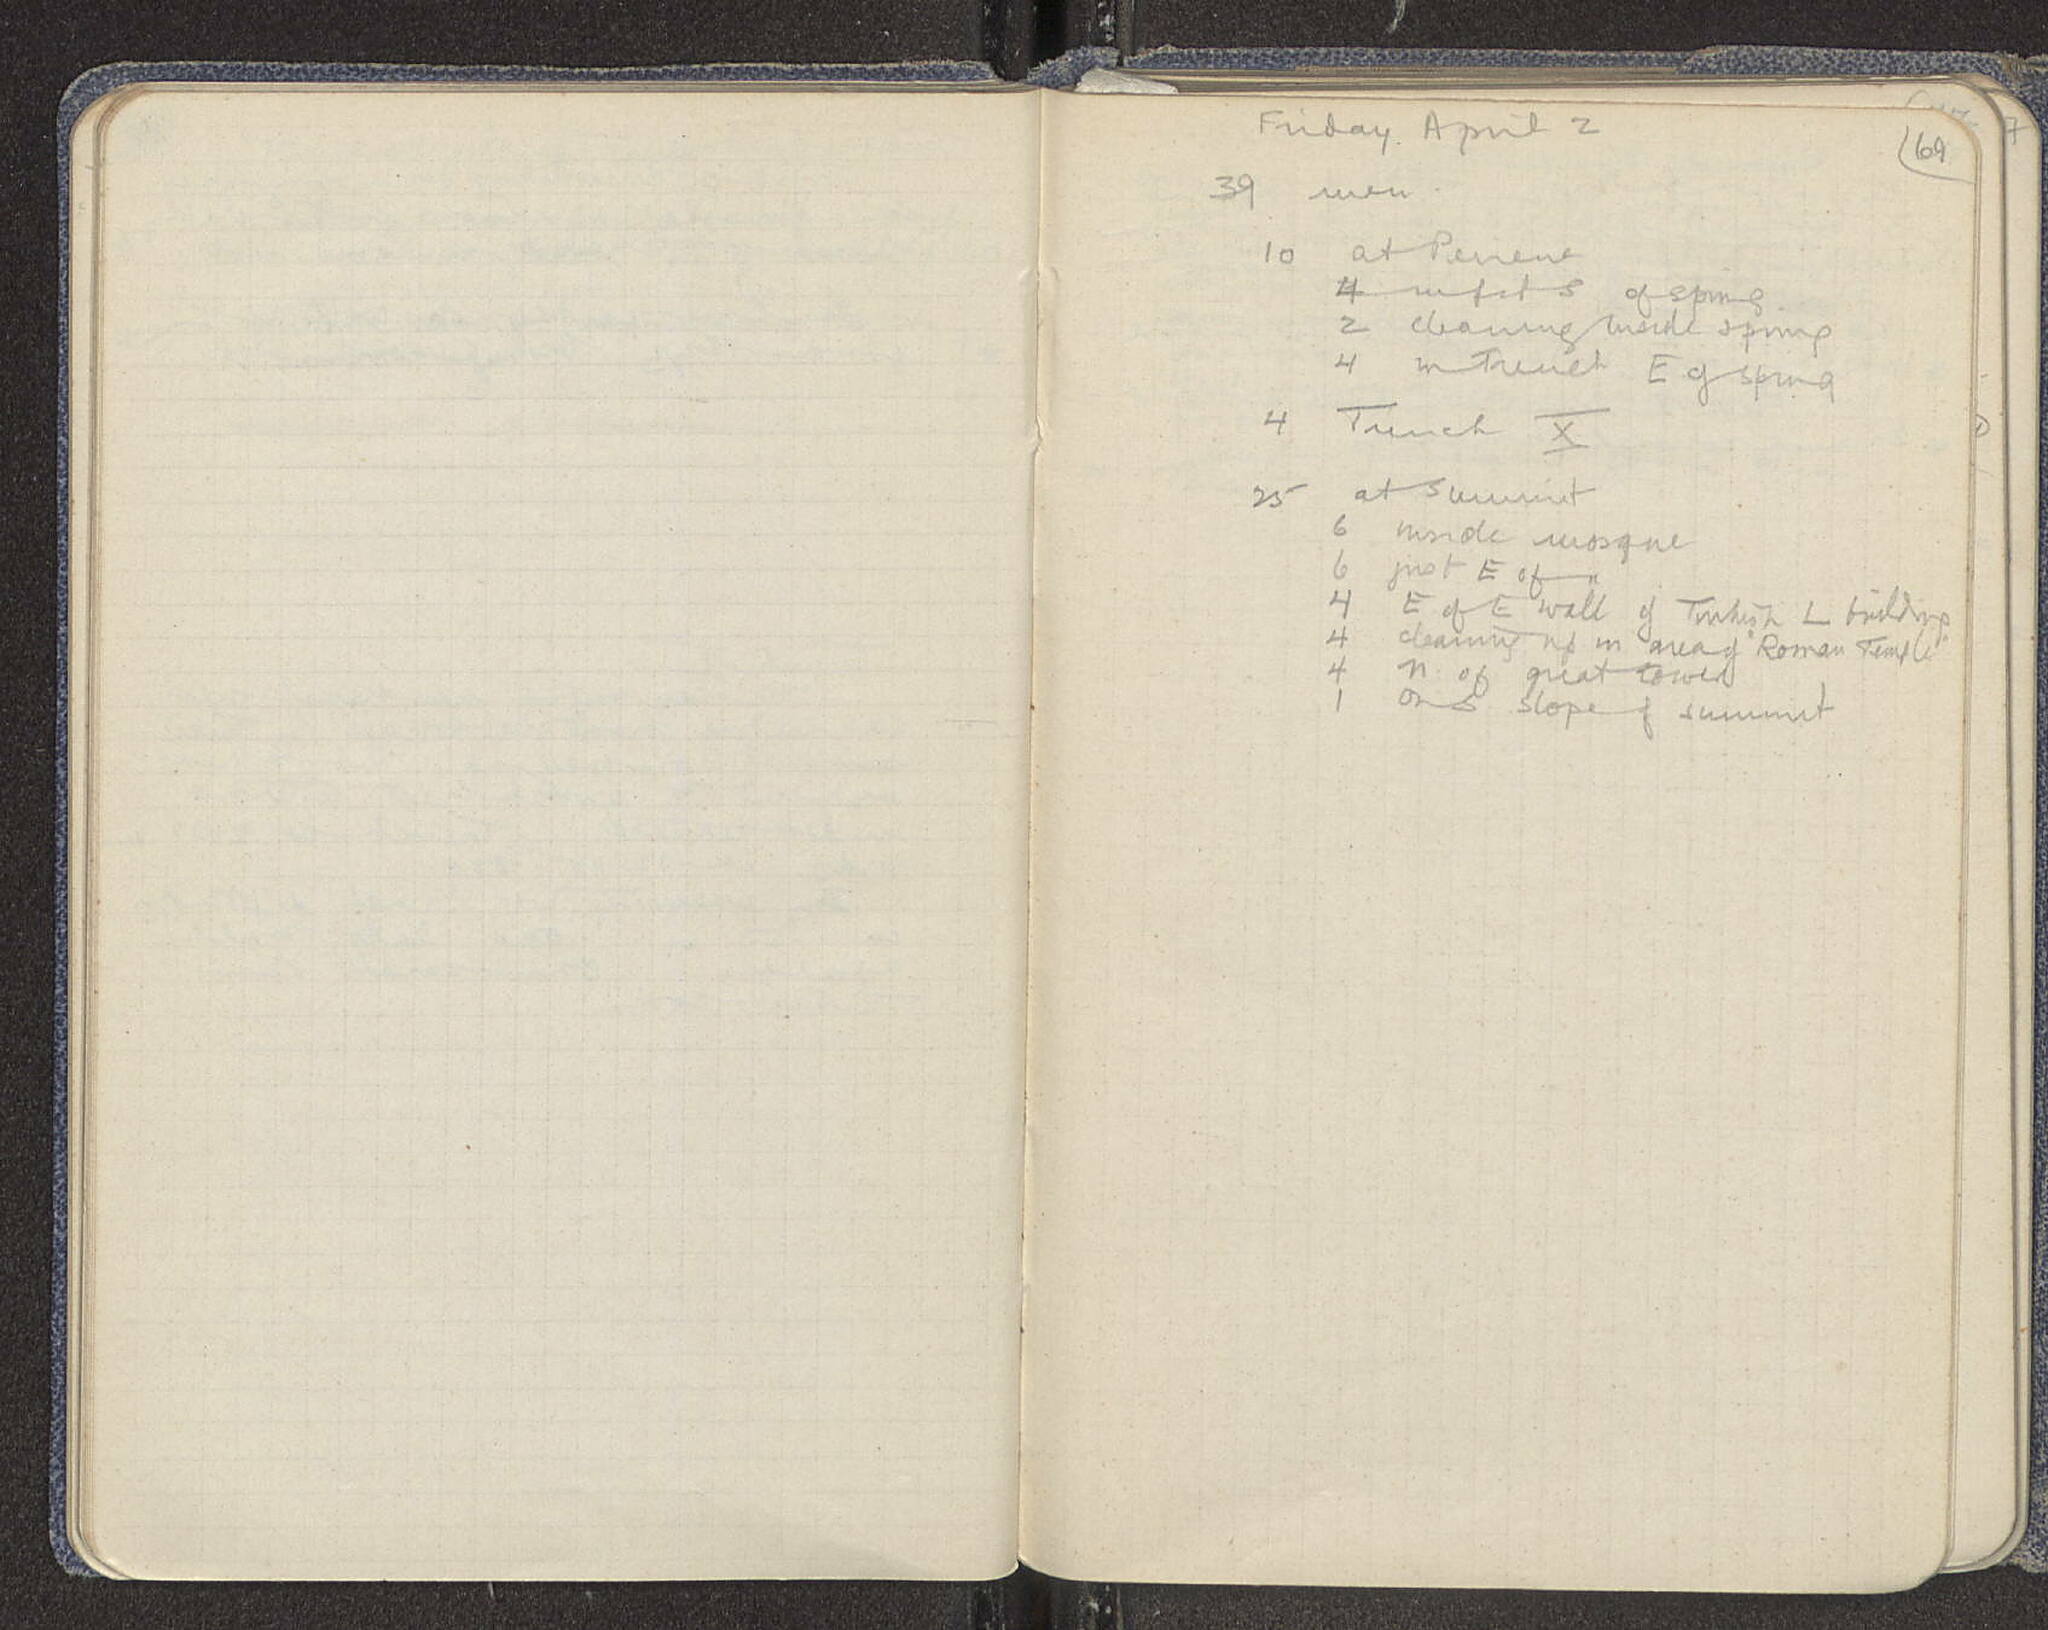 Friday April 2
69
39 men.
10 at Peirene
4 in pit S of spring
2 cleaning inside spring
4 in Trench E of spring
4 Trench X
25 at summit
6 inside mosque
6 just E of "
4 E of E wall of Turkish L building
4 cleaning up in area of "Roman Temple"
4 N. of great tower
1 on S slope of summit